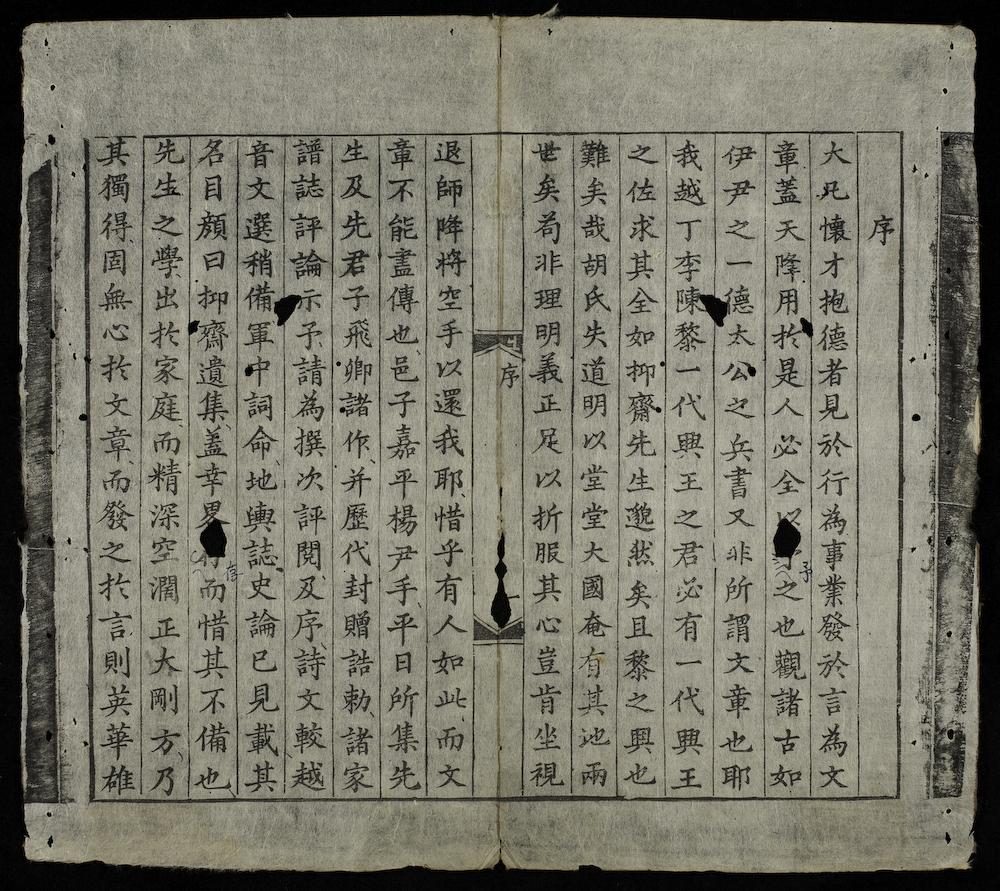 序
大凡懷才抱德者見於行為事業發於言為文
章蓋天降用於是人必全以予之也觀諸古如
伊尹之一德太公之兵書又非所謂文章也耶
我越丁李陳黎一代興王之君必有一代興王
之佐求其全如抑齋先生邈然矣且黎之興也
難矣哉胡氏失道明以堂堂大國奄有其地兩
世矣苟非理明義正足以折服其心豈肯坐視
序
退師降將空手以還我耶惜乎有人如此而文
章不能盡傳也邑子嘉平楊尹手平日所集先
生及先君子飛卿諸作并歷代封贈誥勅諸家
譜誌評論示予請為撰次評閱及序詩文較越
音文選稍備軍中詞命地輿誌史論已見載其
名目顏曰抑齋遺集蓋幸畧存而惜其不備也
先生之學出於家庭而精深空濶正大剛方乃
其獨得固無心於文章而發之於言則英華雄